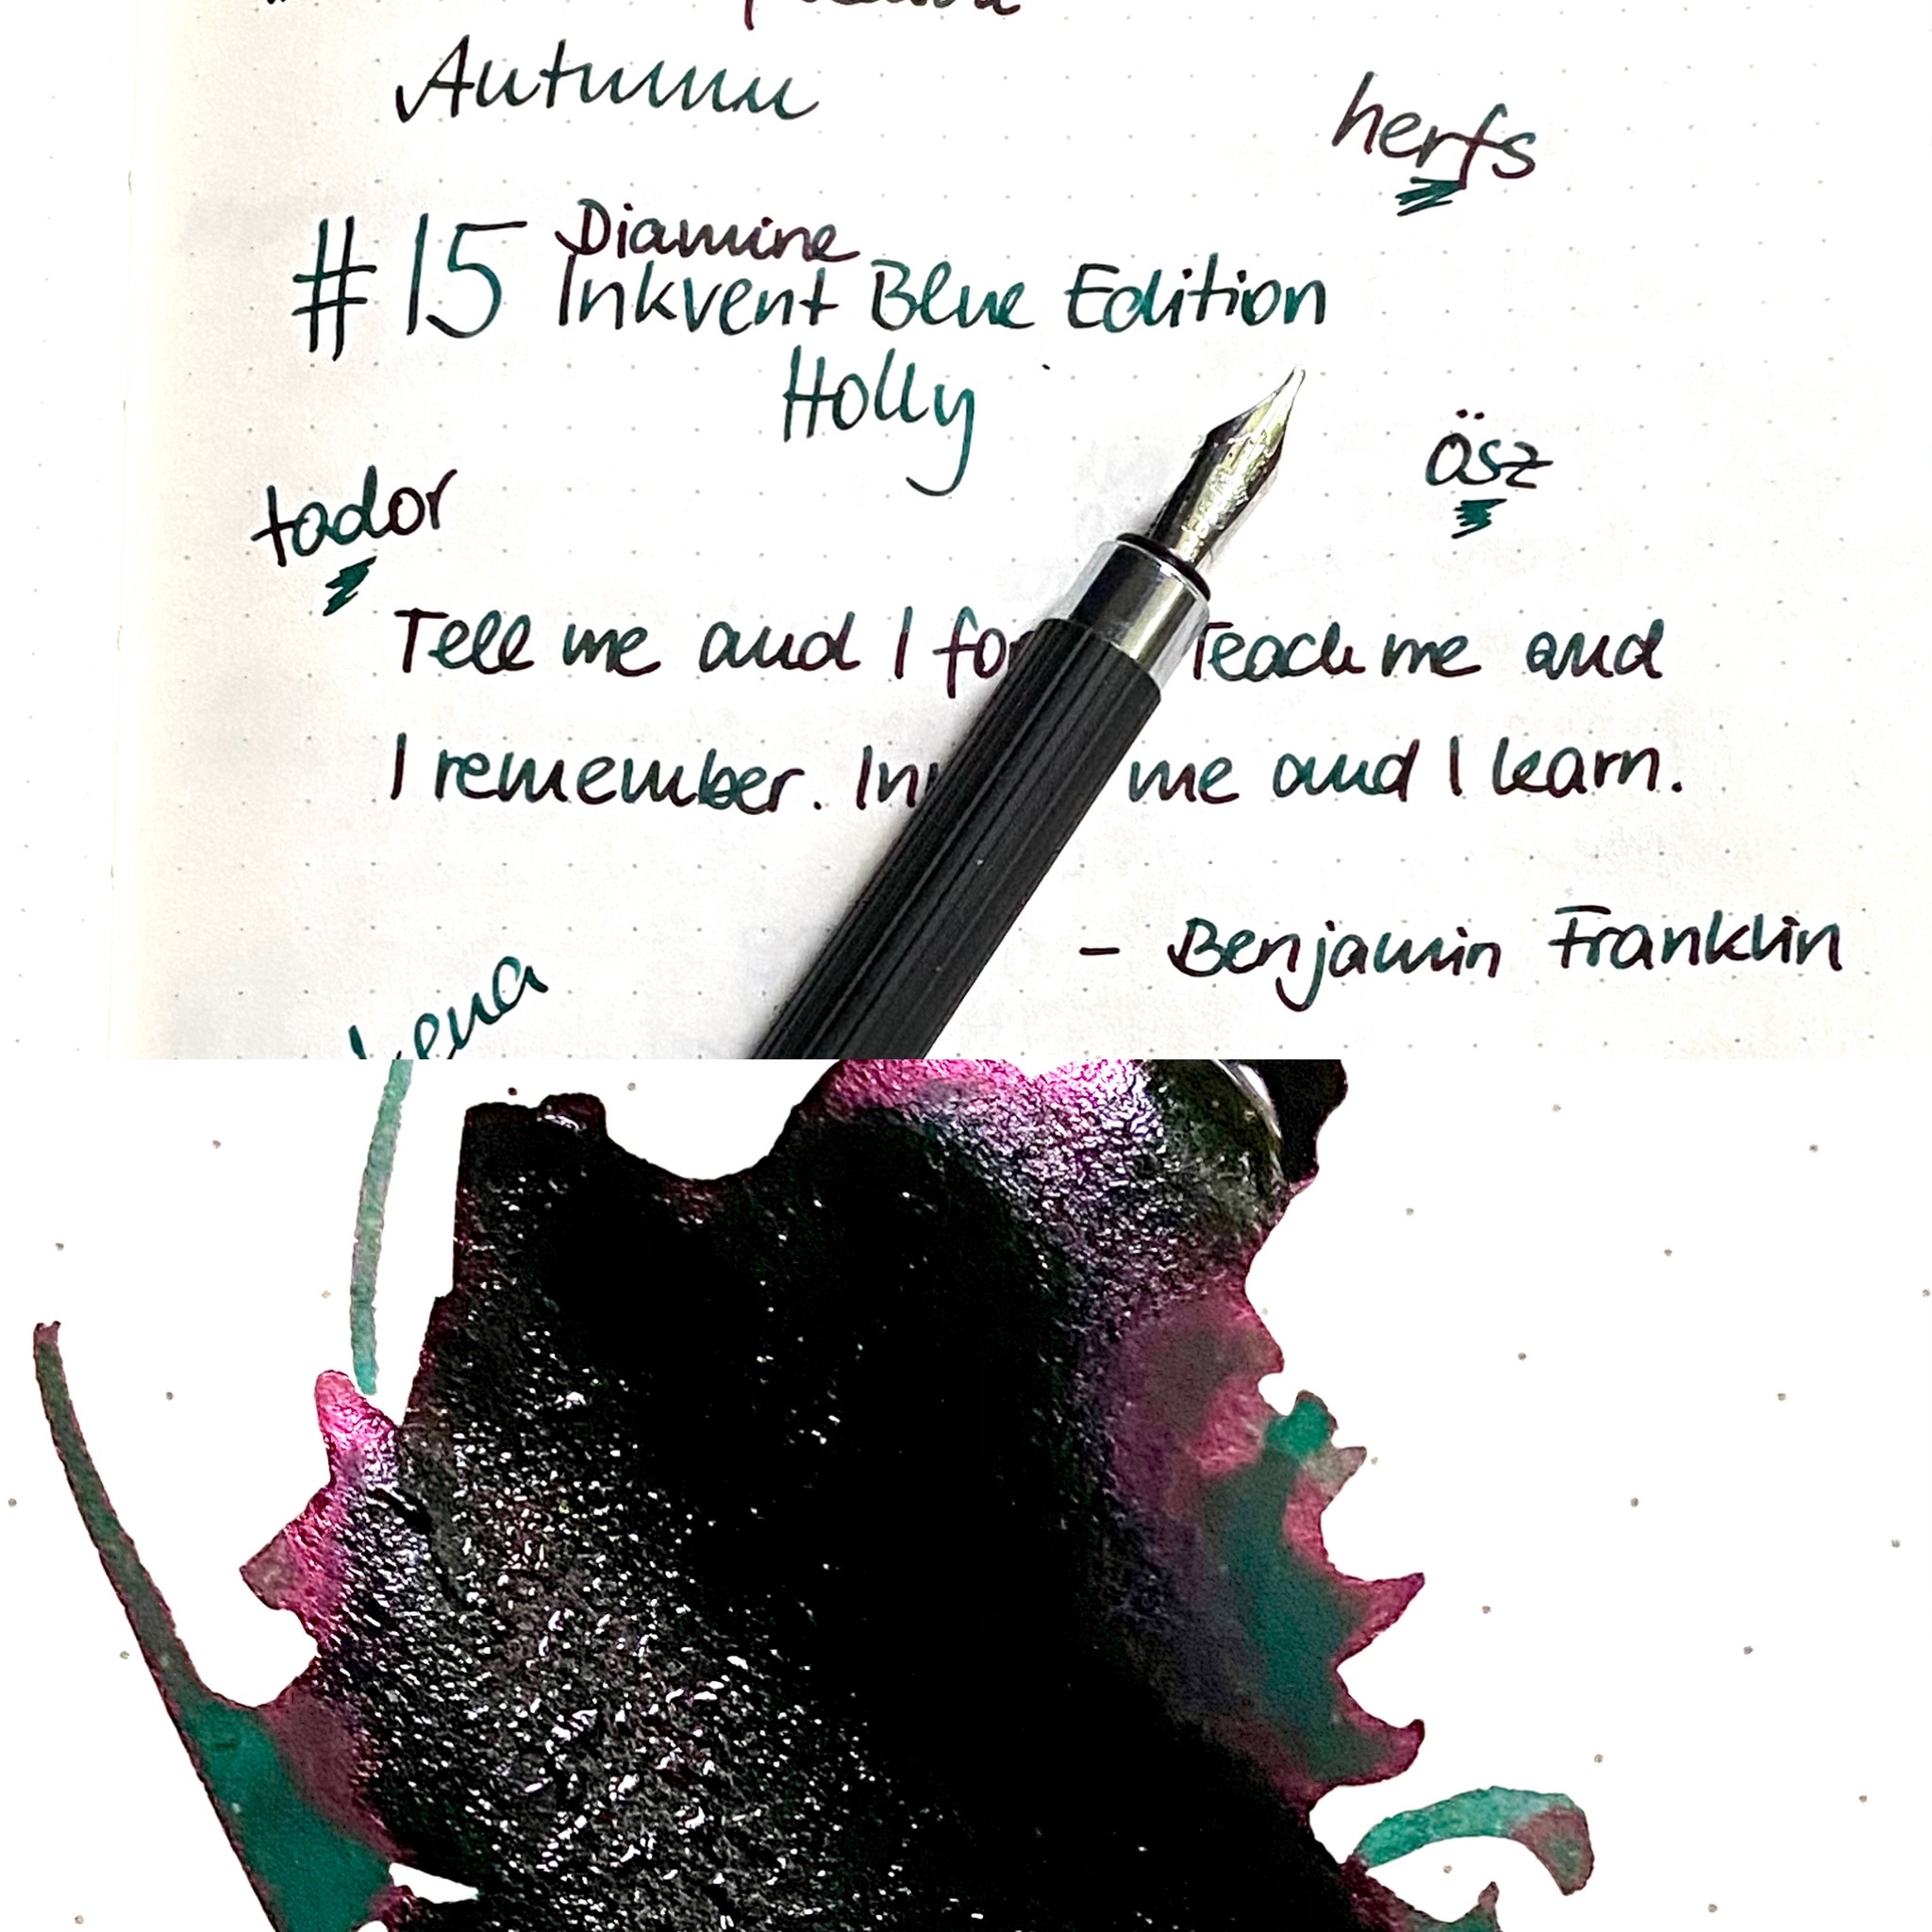 Autumn
herfs
#15 Diamine
Inkvent Blue Edition
Holly
ősz
todor
Tell me and I for Teach me and
I remember. Inv me and I learn.
- Benjamin Franklin
Lena